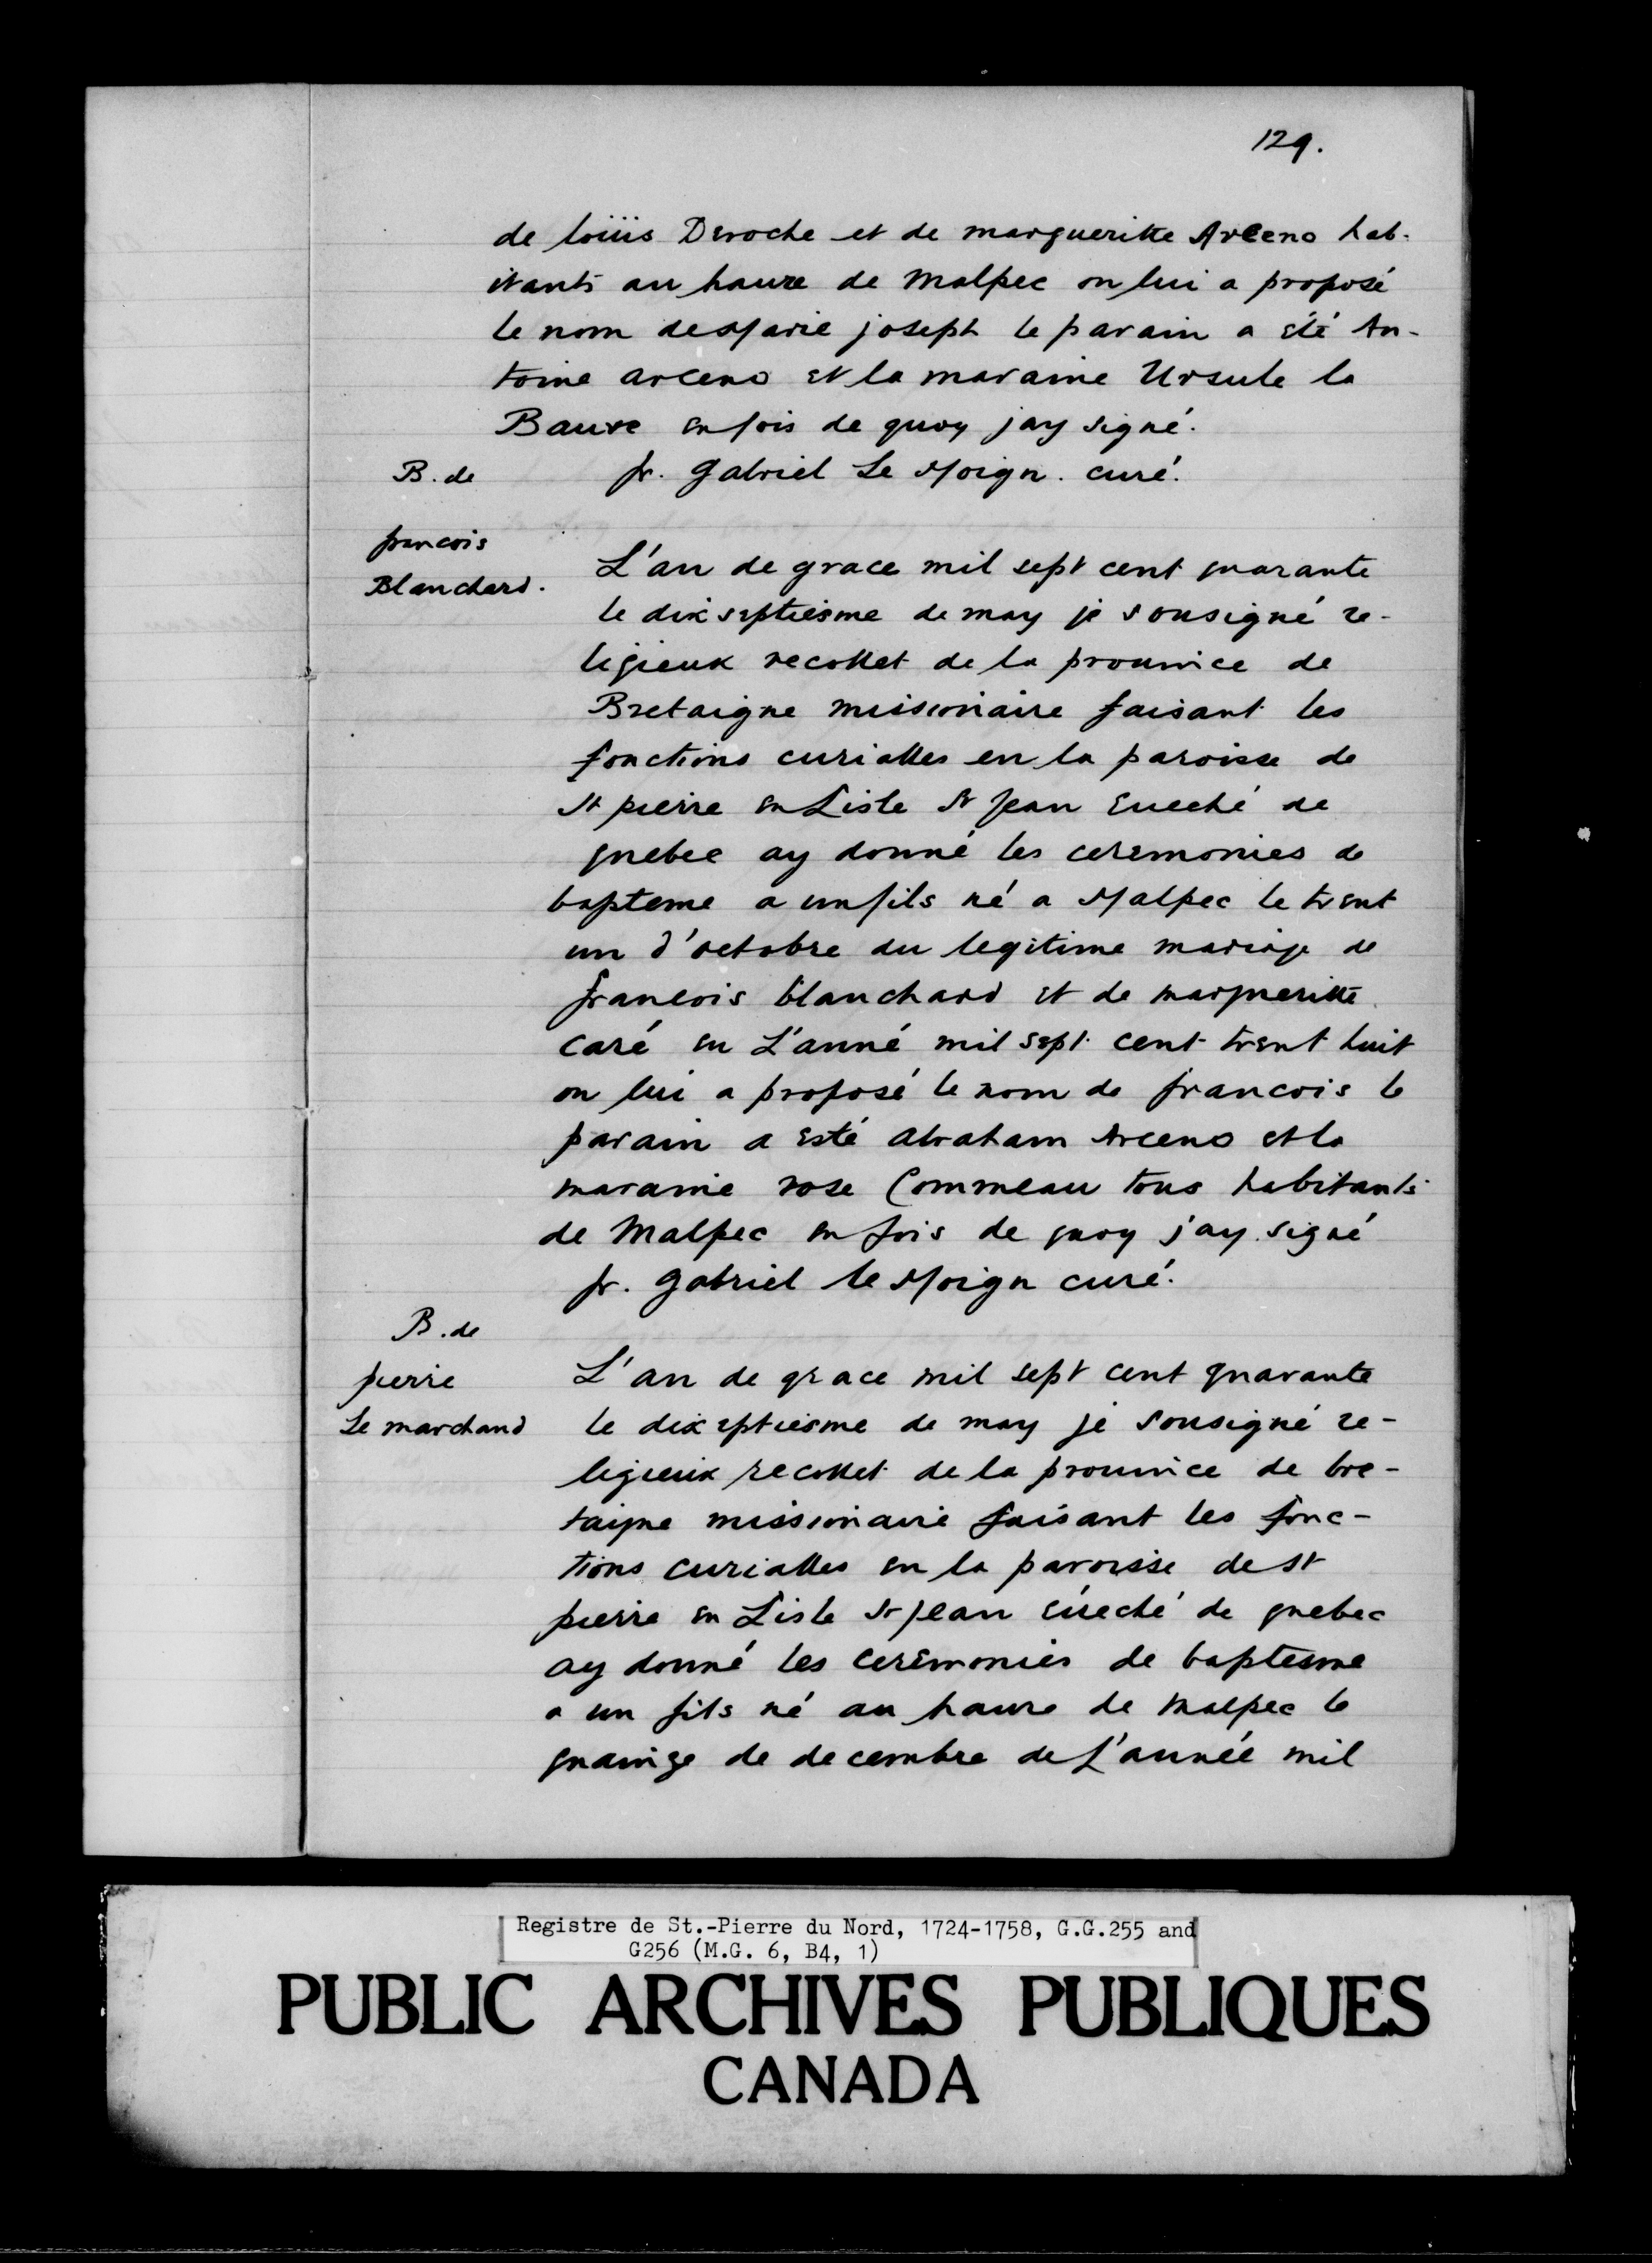 129.
de loüis Deroche et de margueritte Arceno hab-
itants au havre de Malpec on lui a proposé
le nom de Marie joseph le parain a été An-
toine arceno et la maraine Ursule la
Bauve en fois de quoy jay signé.
B. de
fr. Gabriel Le Moign. curé.
francois
Blanchard.
L'an de grace mil sept cent quarante
le dix septiesme de may je sousigné re-
ligieux recollet de la prouvince de
Bretaigne missionaire faisant les
fonctions curialles en la paroisse de
St pierre en Lisle St Jean Eueché de
quebec ay donné les ceremonies de
bapteme a un fils né a Malpec le trent
un d'octobre du legitime mariage de
francois blanchard et de margueritte
caré en L'anné mil sept cent trent huit
on lui a proposé le nom de francois le
parain a esté abraham Arceno et la
maraine rose Commeau tous habitants
de Malpec en fois de quoy j'ay signé
fr. Gabriel le Moign curé.
B. de
pierre
Le marchand
L'an de grace mil sept cent quarante
le dix eptiesme de may je sousigné re-
ligieuix recollet de la prouvince de bre-
taigne missionaire faisant les fonc-
tions curialles en la paroisse de St
pierre en Lisle St jean eúeché de quebec
ay donné les ceremonies de baptesme
a un fils né au havre de Malpec le
quainze de decembre de L'année mil
Registre de St.-Pierre du Nord, 1724-1758, G.G.255 and
G256 (M.G. 6, B4, 1)
PUBLIC ARCHIVES PUBLIQUES
CANADA